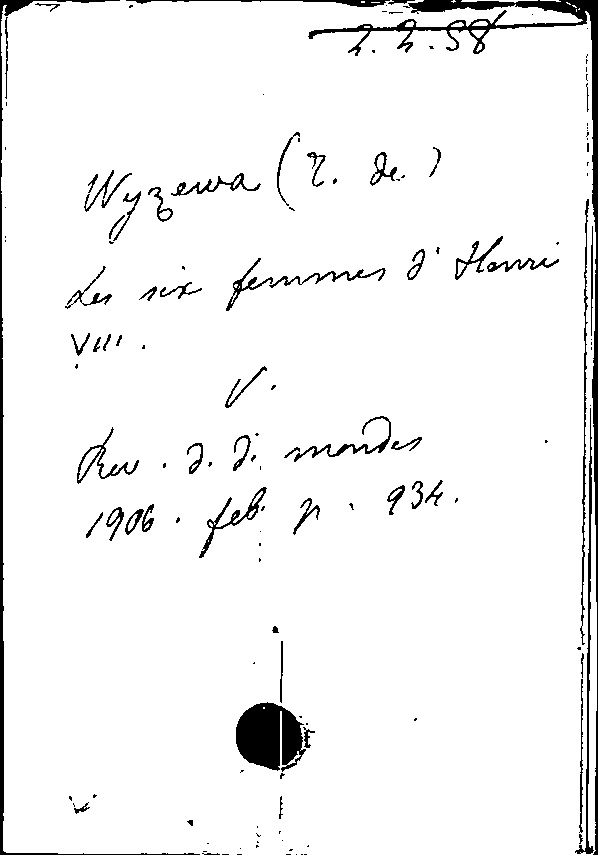 2.2.58
Wyzewa (T. de.)
Les six femmes d'Henri
VIII.
V.
Rev. d. d. mondes
1906. feb. p. 934.